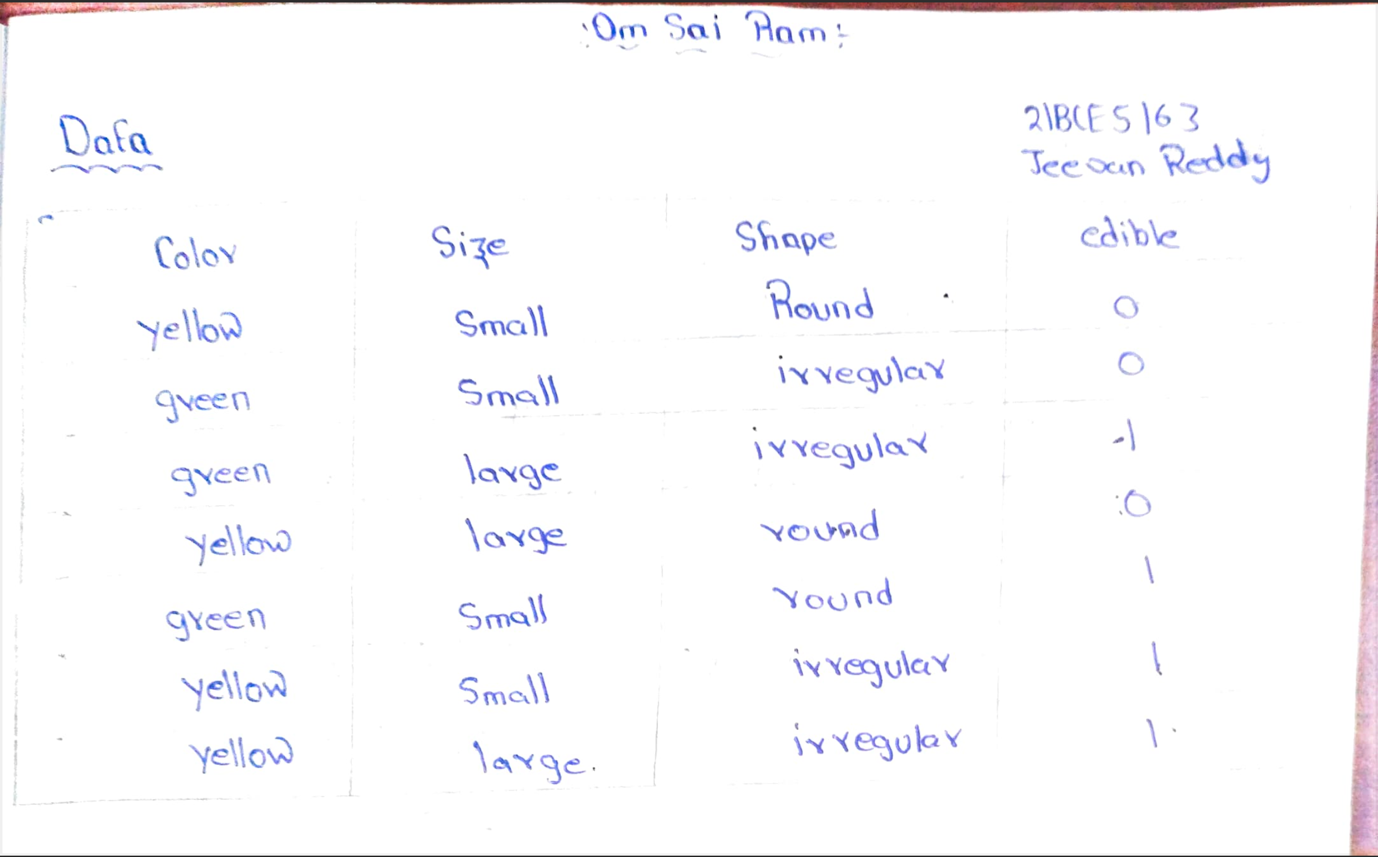 :Om Sai Ram:
21BCE5163
Data
Jeevan Reddy
Color Size Shape edible
yellow Small Round 0
green Small irregular 0
green large irregular -1
yellow large round :0
green Small round 1
yellow Small irregular 1
yellow large. irregular 1.